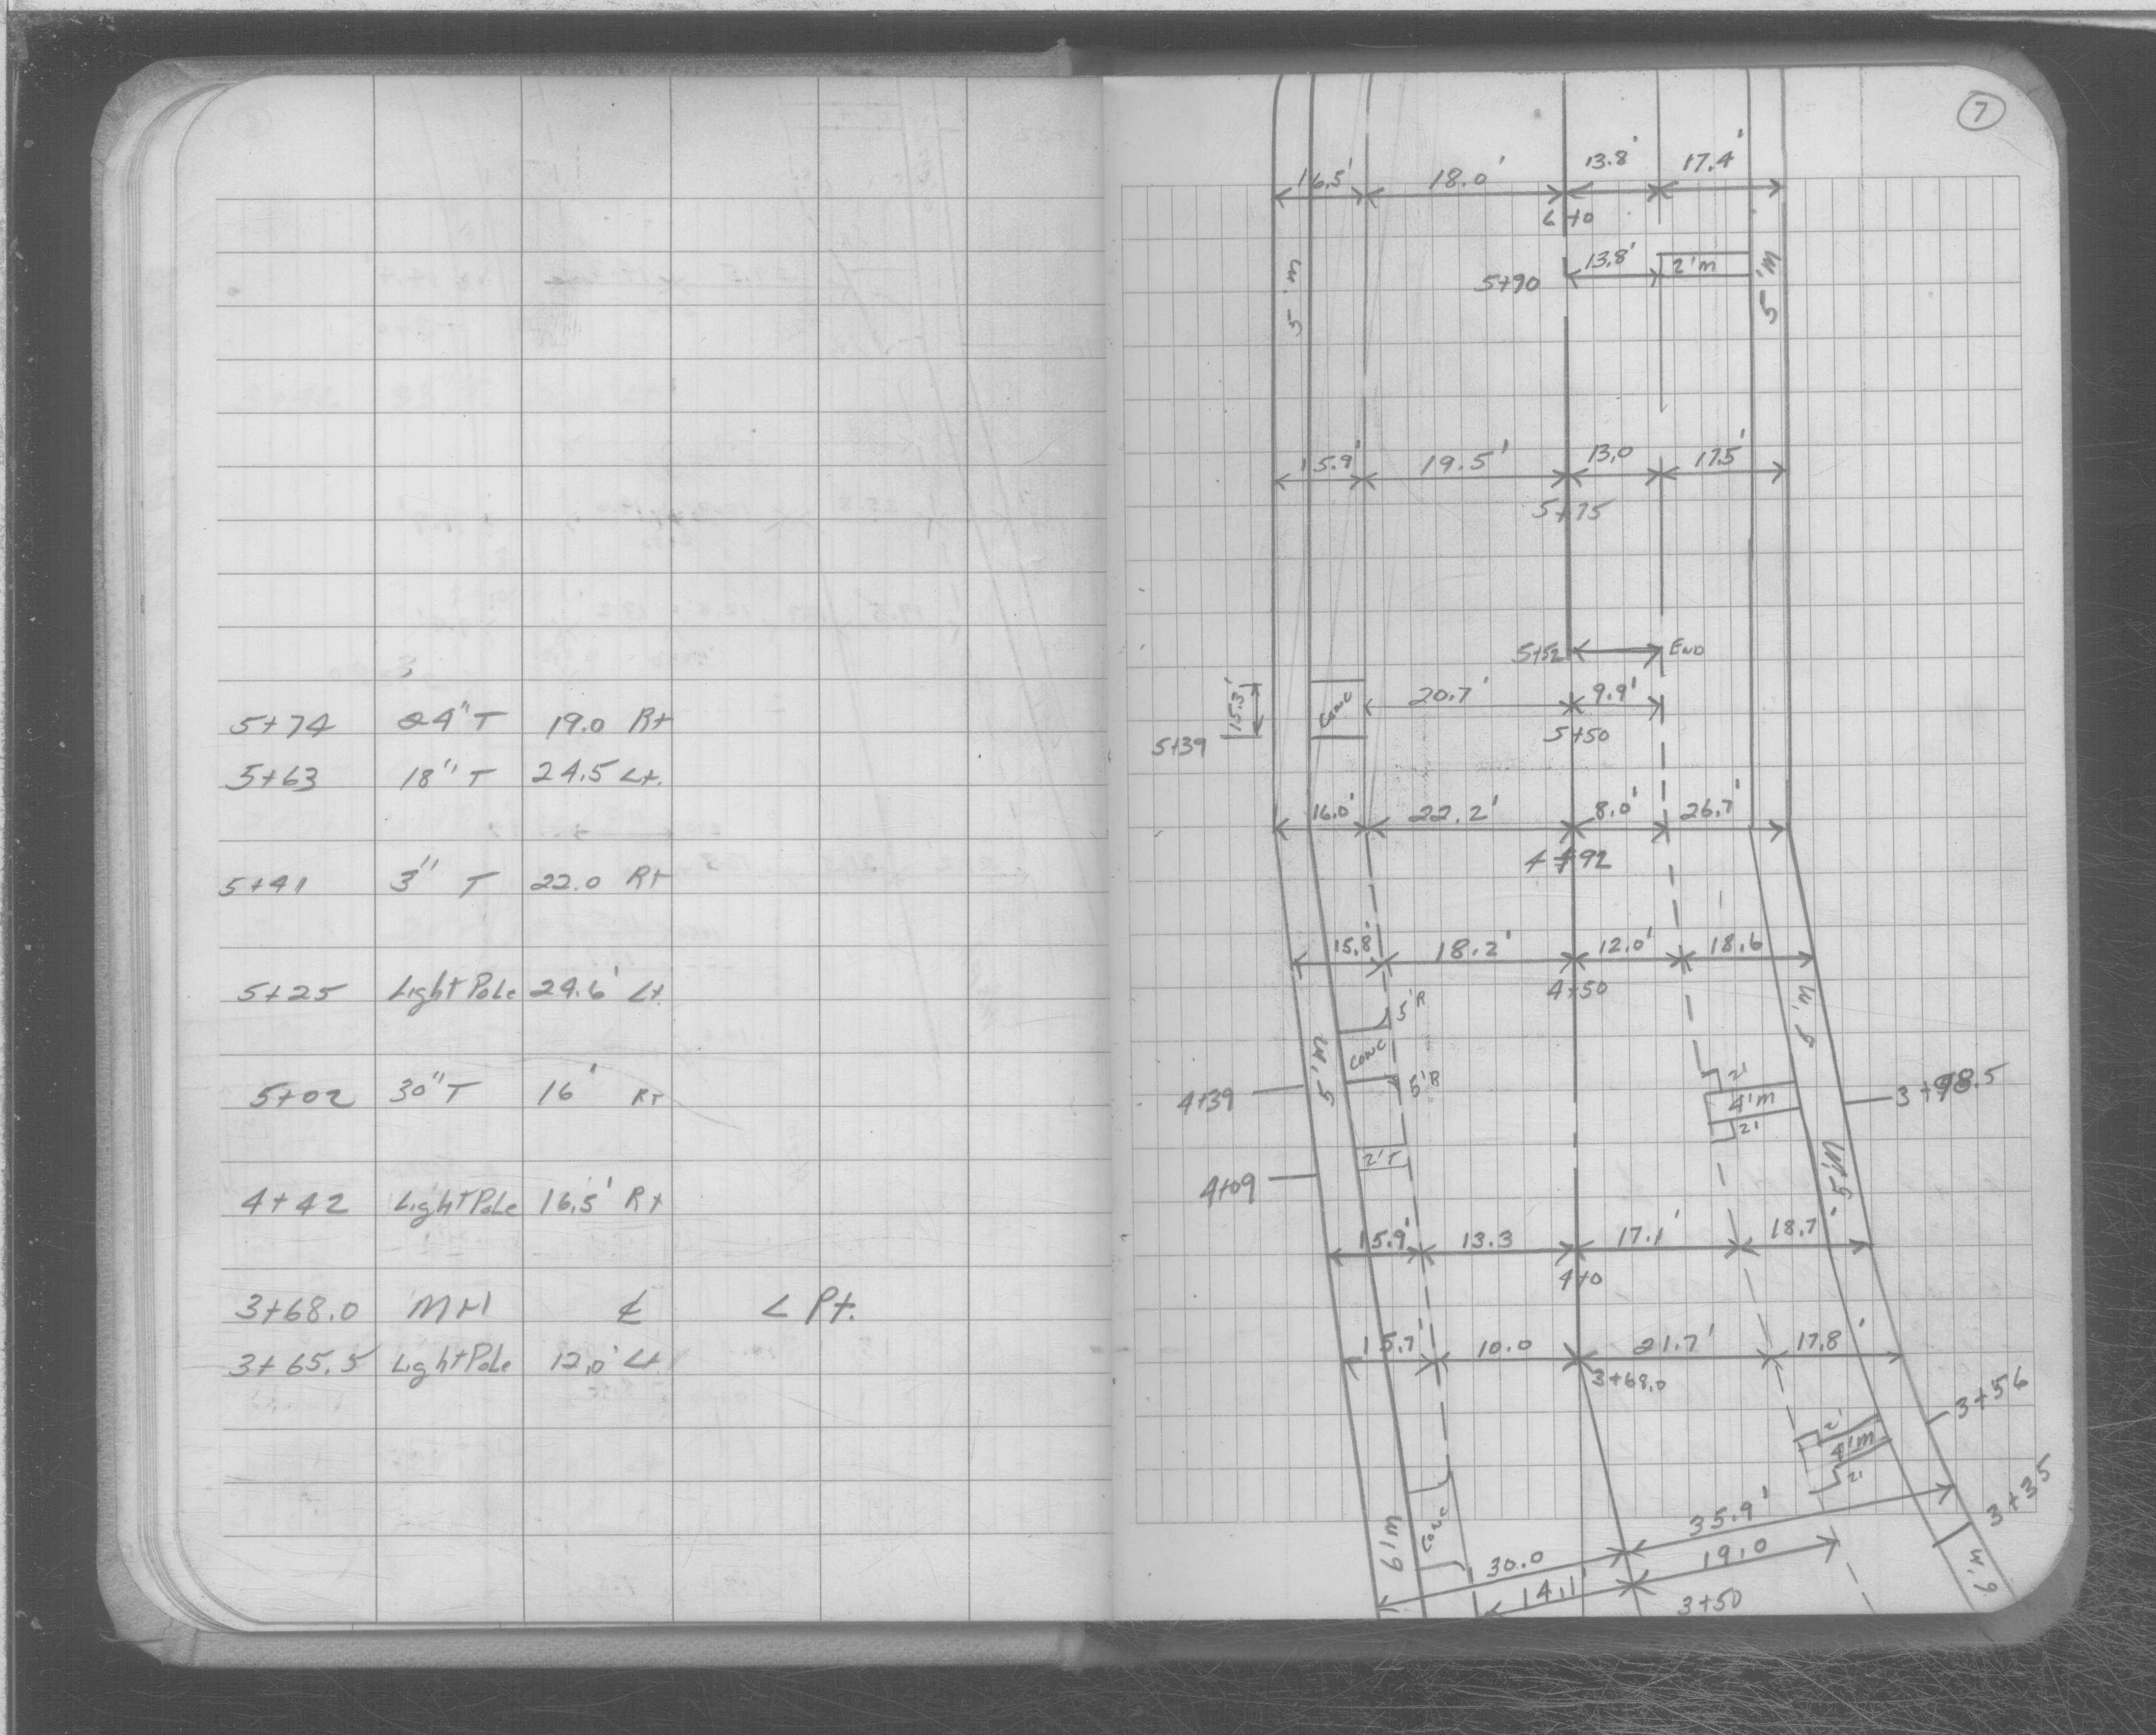 5+74 24" T 19.0 Rt
5+63 18" T 24.5 Lt.
5+41 3" T 22.0 Rt
5+25 Light Pole 24.6' Lt
5+02 30" T 16' RT
4+42 Light Pole 16.5' Rt
3+68.0 MH ℄ < Pt.
3+65.5 Light Pole 12.0' Lt
7
16.5' 18.0' 13.8' 17.4'
6+0
5'm 5+90 13.8' 2'm 5'm
15.9' 19.5' 13.0 17.5'
5+75
5+52 END
15.3' Conc 20.7' 9.9'
5+39 5+50
16.0' 22.2' 8.0' 26.7'
4+92
15.8' 18.2' 12.0' 18.6
4+50
5'R 6'm
5'm Conc 5'R
4+39 2' 4'm 2' 3+98.5
2'T 5'm
4+09
15.9' 13.3 17.1' 18.7'
4+0
15.7' 10.0 21.7' 17.8'
3+68.0
2' 4'm 2' 3+56
6'm Conc 35.9' 3+35
30.0 19.0
14.1' 3+50 6'm